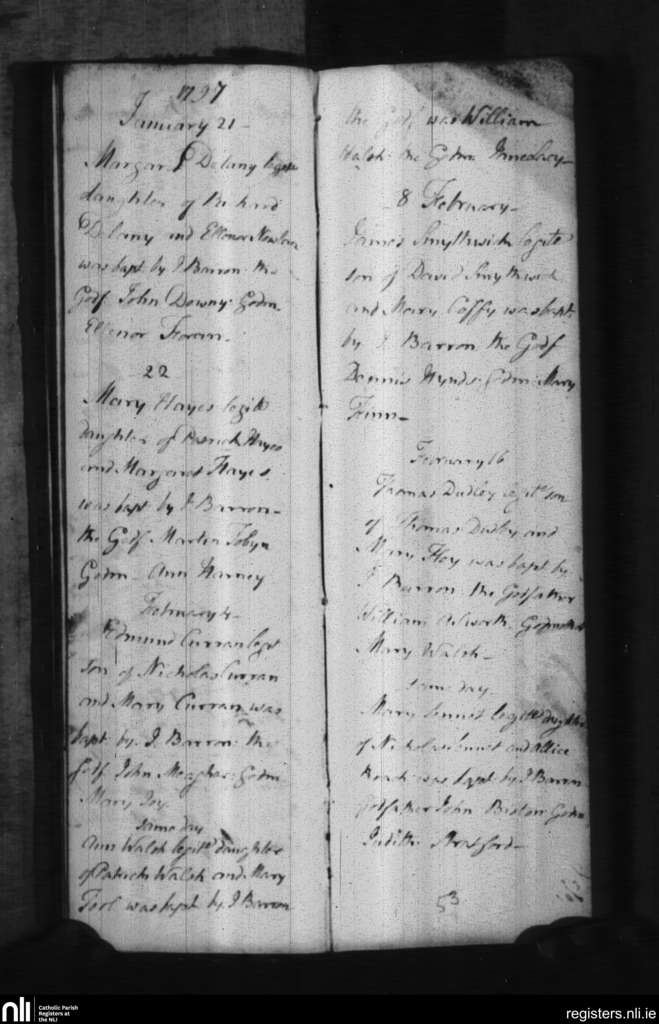 1797
January 21
Margart Delany legit
daughter of Richard
Delany and Ellenor
was bapt by J Barron the
Godf John Downy Godm
Ellenor Foran
22
Mary Hayes legitt
daughter of Patrick Hayes
and Margaret Hayes
was bapt by J Barron
the Godf Martin Tobyn
Godm Ann Harney
February 4
Edmund Curran legit
son of Nicholas Curran
and Mary Curran was
bapt by J. Barron the
Godf John Meagher Godm
Mary Joy
same day
Ann Walsh legitt daughter
of Patrick Walsh and Mary
Tool was bapt by J Barron
the Godf was William
Walsh the Godm Lacy
8 February
James Smythwick legitt
son of David Smythwick
and Mary Caffy was bapt
by J. Barron the Godf
Dennis Hynds Godm Mary
Finn
February 16
Thomas Dudley legitt son
of Thomas Dudley and
Mary Hoy was bapt by
J Barron the Godfather
William Godmother
Mary Walsh
same day
Mary Sinnot legitt daughter
of Nicholas Sinnot and Allice
Roach was bapt by J Barron
godfather John Godm
Judith Stratford
53
nli
Catholic Parish
Registers at
the NLI
registers.nli.ie